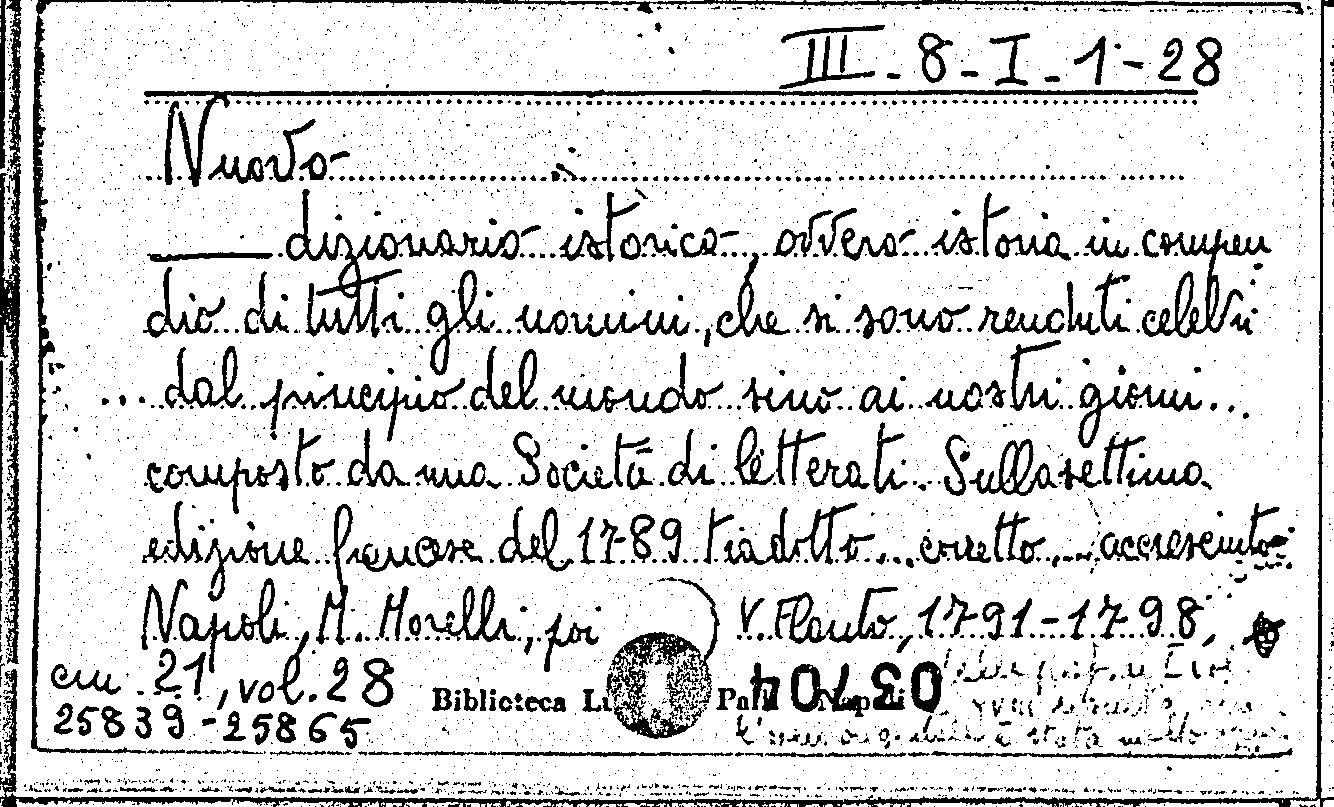 III - 8 - I - 1 - 28
Nuovo
____ dizionario istorico, ovvero istoria in compen
dio di tutti gli uomini, che si sono renduti celebri
... dal principio del mondo sino ai nostri giorni...
composto da una Società di letterati. Sulla settima
edizione francese del 1789 tradotto... corretto... accresciuto
Napoli, M. Morelli, poi V. Flauto, 1791-1798,
cm. 21, vol. 28
Biblioteca
25839-25865